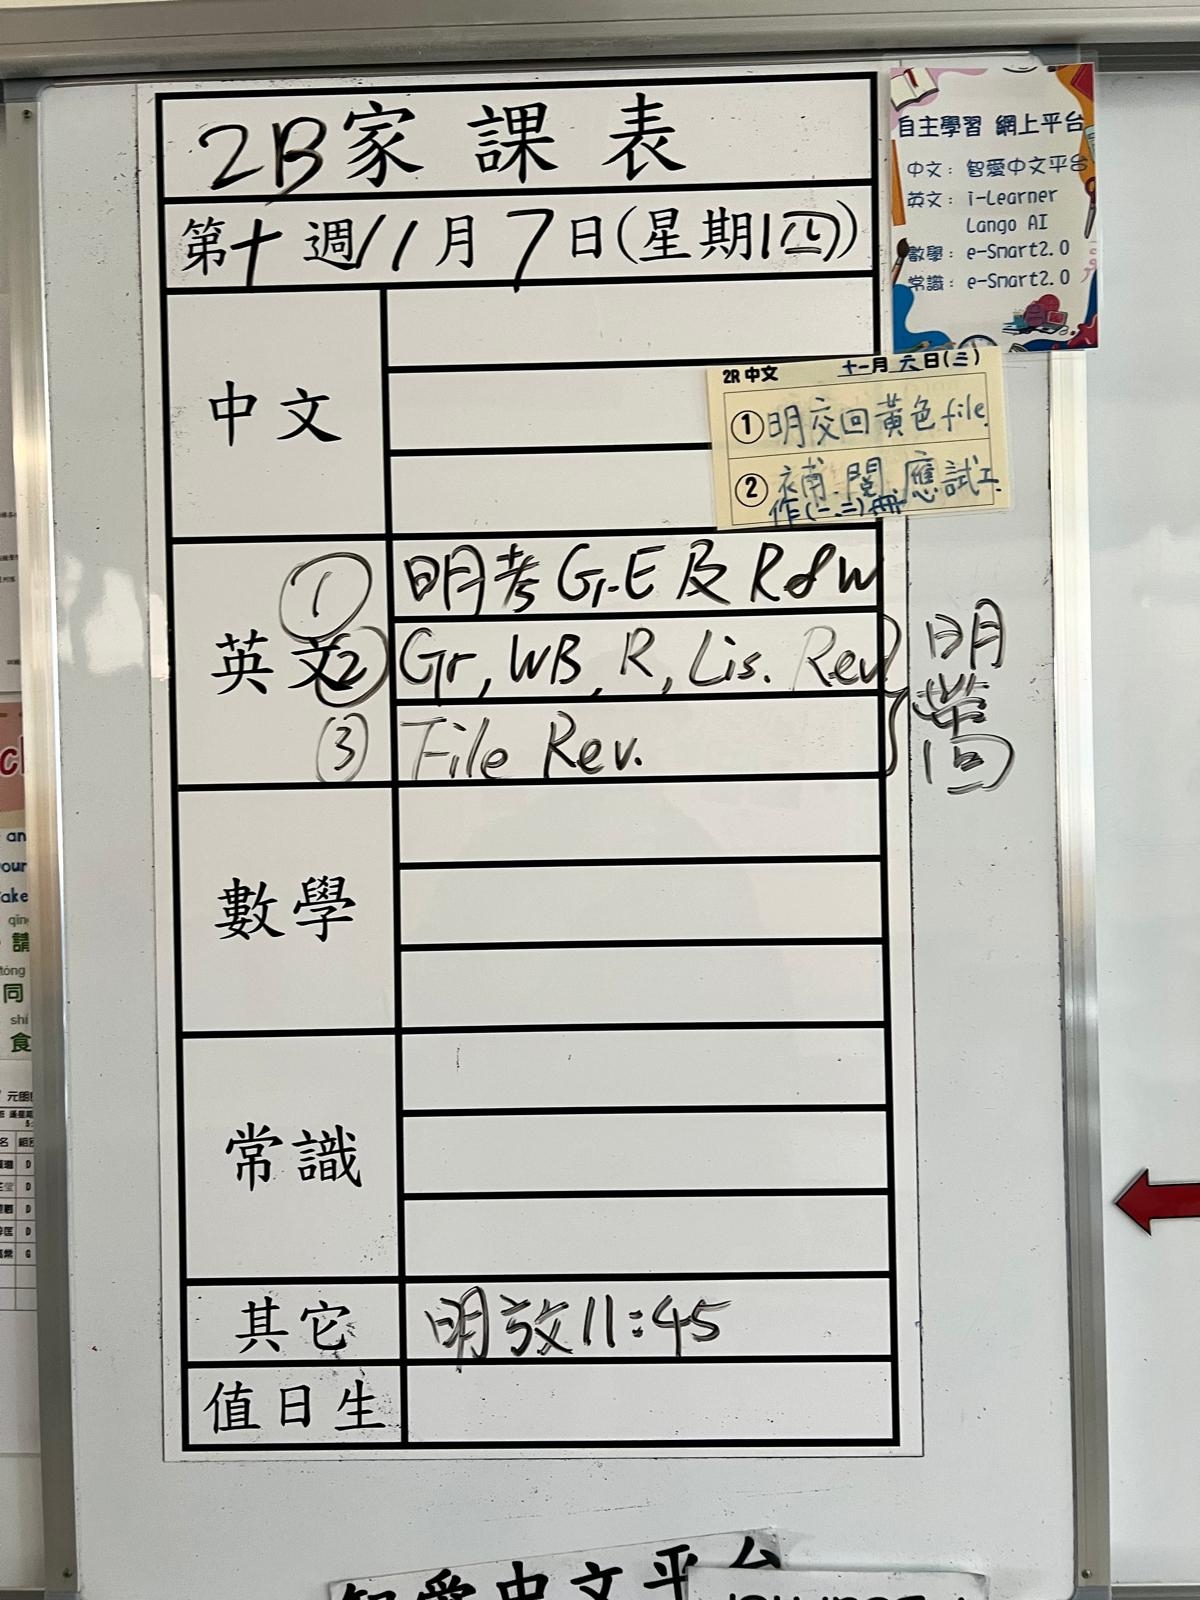 2B家課表
第十週11月7日(星期(四))
中文
英文
① 明考Gr.E及R&W
② Gr, WB, R, Lis. Rev.
③ File Rev.
明
帶
回
數學
常識
其它
明放11:45
值日生
自主學習 網上平台
中文: 智愛中文平台
英文: i-Learner
Lango AI
數學: e-Smart2.0
常識: e-Smart2.0
2R 中文 十一月六日(三)
① 明交回黃色file.
② 補.閱.應試工
作(一、二)冊
智愛中文平台
an
your
take
請
tóng
同
shí
食